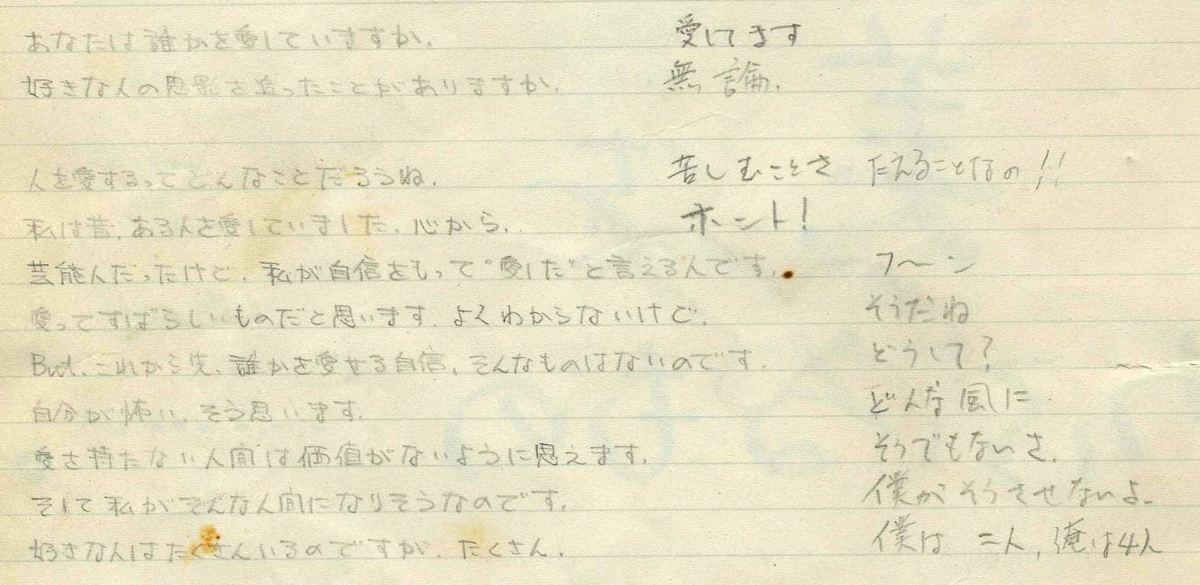 あなたは誰かを愛していますか. 愛してます
好きな人の思影を追ったことがありますか. 無論.
人を愛するってどんなことだろうね. 苦しむことさ たえることなの!!
私は昔、ある人を愛していました. 心から. ホント!
芸能人だったけど、私が自信をもって“愛した”と言える人です. フ〜ン
愛ってすばらしいものだと思います. よくわからないけど. そうだね
But、これから先、誰かを愛せる自信、そんなものはないのです. どうして?
自分が怖い、そう思います. どんな風に
愛を持たない人間は価値がないように思えます. そうでもないさ.
そして私がそんな人間になりそうなのです. 僕がそうさせないよ.
好きな人はたくさんいるのですが、たくさん. 僕は二人, 俺は4人